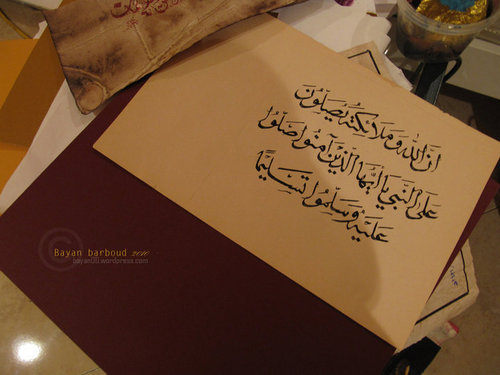 ان الله وملائكته يصلون
على النبي يا أيها الذين آمنوا صلوا
عليه وسلموا تسليما
Bayan barboud 2010
bayan00.wordpress.com